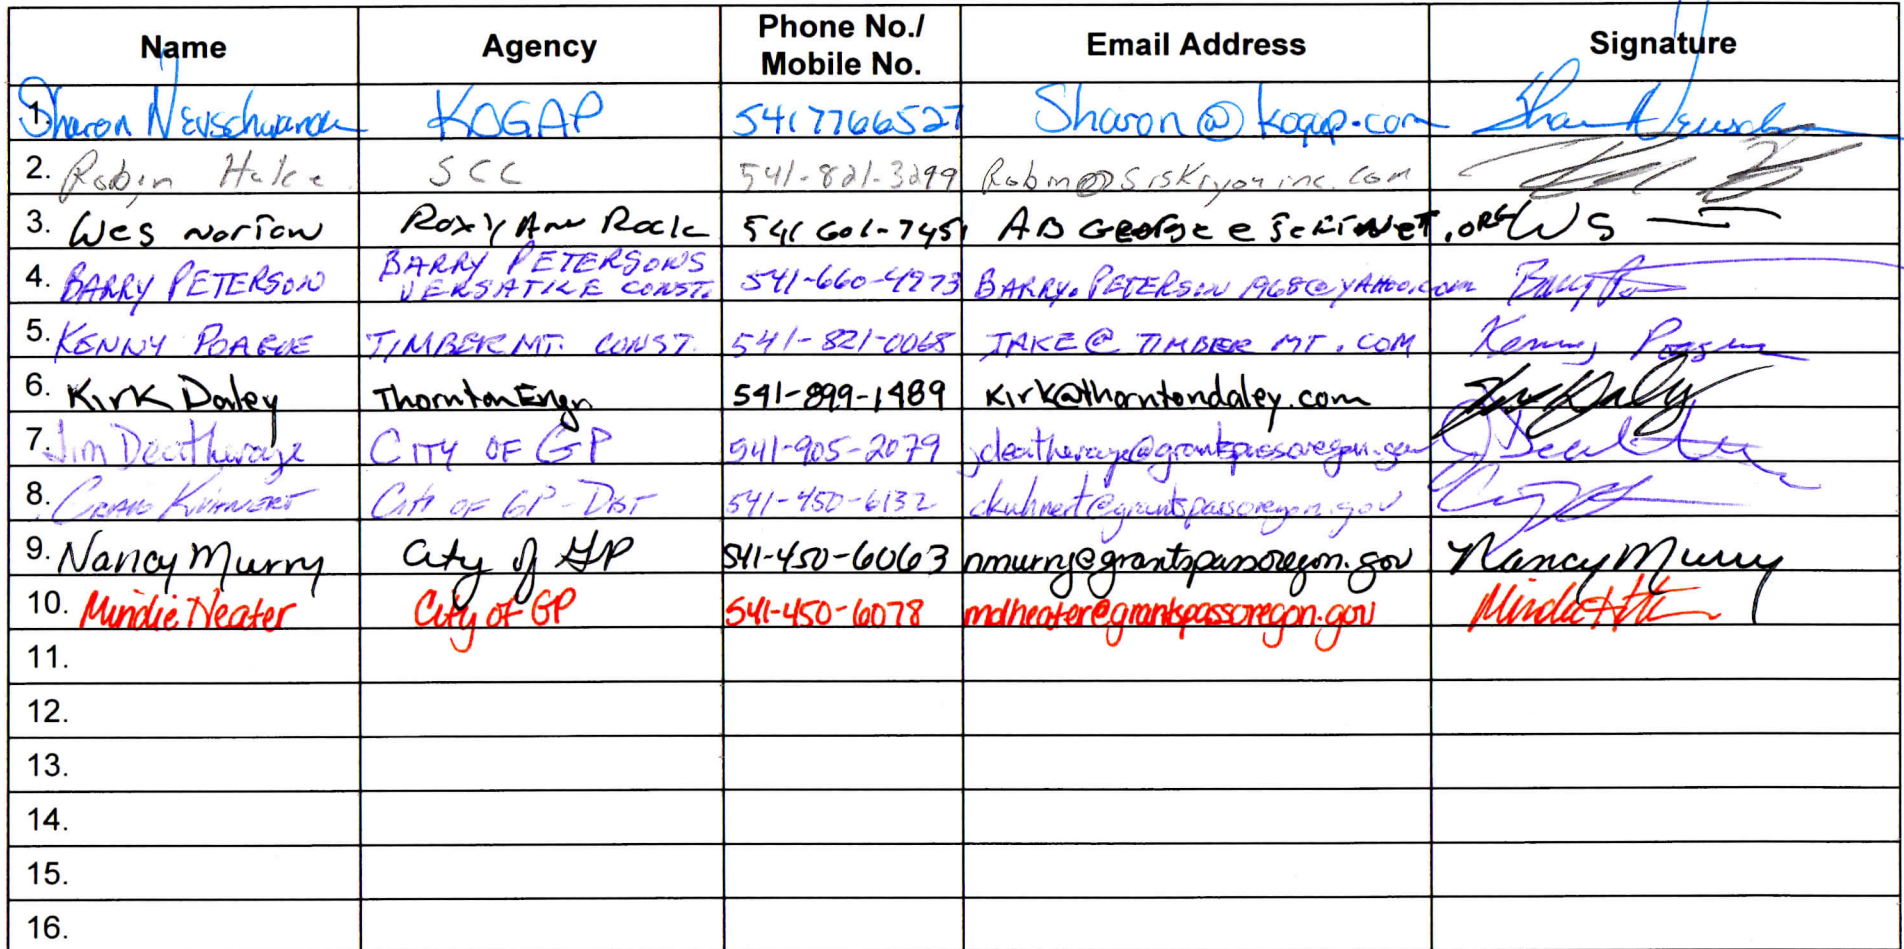 Name Agency Phone No./ Mobile No. Email Address Signature
1. Sharon Neuschwander KOGAP 5417766527 Sharon@kogap.com
2. Robin Hake SCC 541-821-3299 Robin@Siskiyouinc.com
3. Wes Norton Roxy Ann Rock 541 601-7451
4. BARRY PETERSON BARRY PETERSONS VERSATILE CONST. 541-660-4973 BARRY.PETERSON1968@YAHOO.COM
5. KENNY POAGUE TIMBER MT. CONST. 541-821-0068 JAKE@TIMBERMT.COM Kenny
6. Kirk Daley Thornton Engr 541-899-1489 Kirk@thorntondaley.com Kirk Daley
7. Jim Deatherage CITY OF GP 541-905-2079 jdeatherage@grantspassoregon.gov
8. CRAIG KUHNERT City OF GP-DIST 541-450-6132 ckuhnert@grantspassoregon.gov
9. Nancy Murry City of GP 541-450-6063 nmurry@grantspassoregon.gov Nancy Murry
10. Mindie Heater City of GP 541-450-6078 mdheater@grantspassoregon.gov
11.
12.
13.
14.
15.
16.